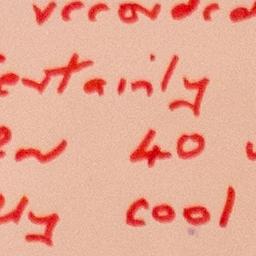 recorded
certainly
en 40
ly cool